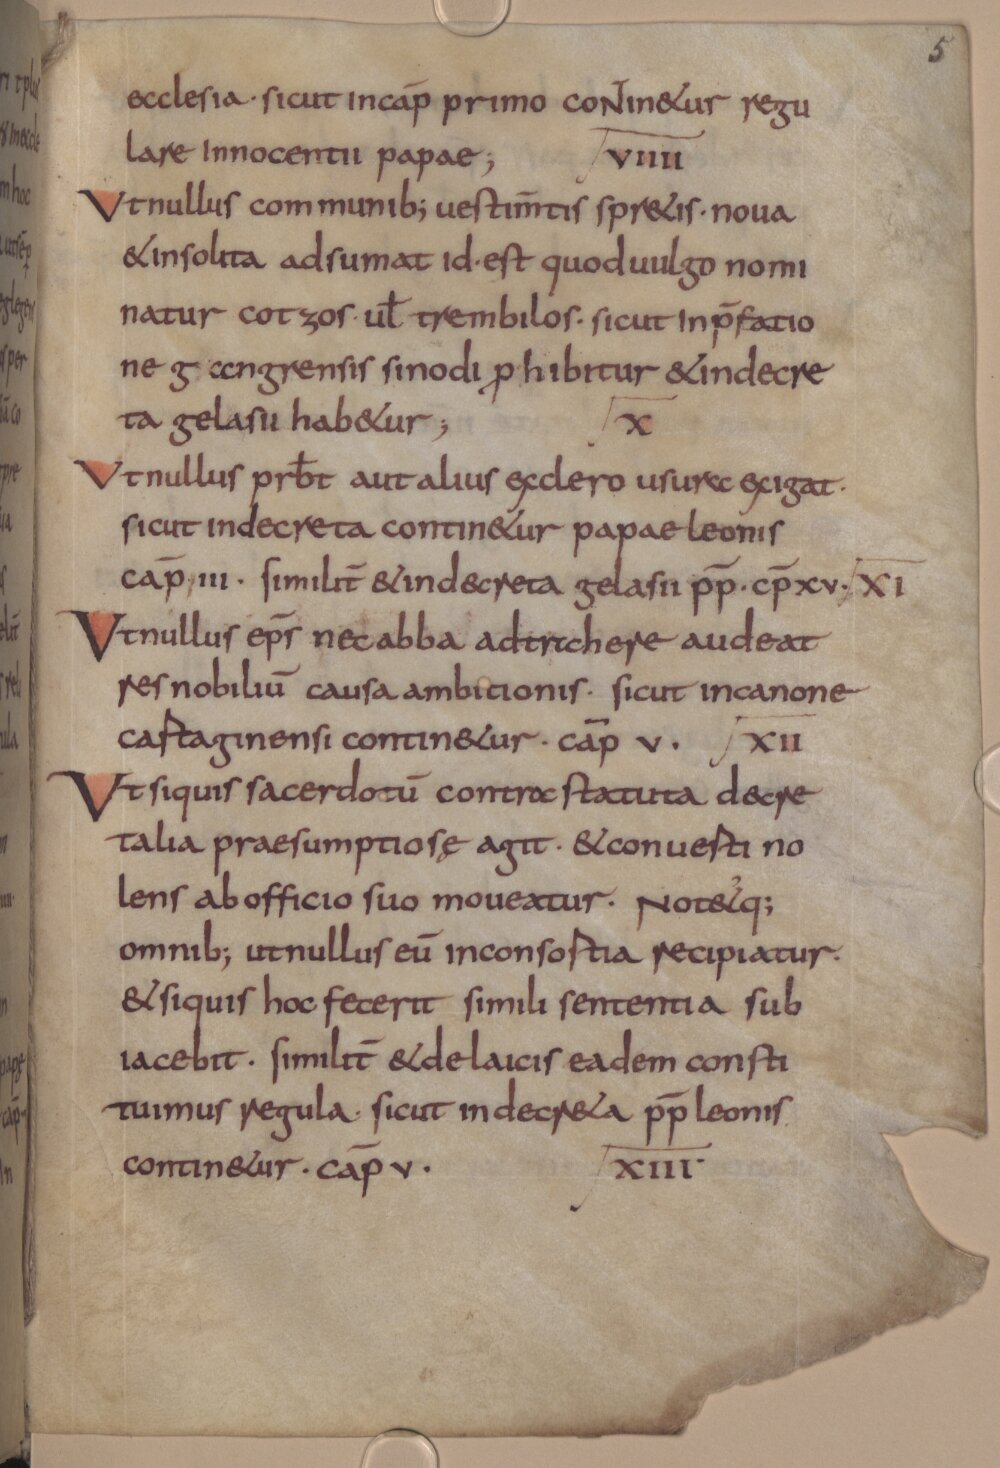 5
ecclesia · sicut incap̄ primo con̄tin&ur regu
lare Innocentii papae ; VIIII
Vtnullus communib; uestim̄tis spr&is · noua
&insolita adsumat id·est quod uulgo nomi
natur cotzos · ul̄ trembilos · sicut Inp̄fatio
ne g cengrensis sinodi ꝓhibitur &indecre
ta gelasii hab&ur ; X
Vtnullus prb̄t aut alius exclero usurec exigat ·
sicut indecreta contin&ur papae leonis
cap̄ ,III · similit̄ &indecreta gelasii pp̄ · cp̄ xv · XI
Vtnullus ep̄s nec abba adtrichere audeat
res nobiliū causa ambitionis · sicut incanone
castaginensi contin&ur · cap̄ v · XII
Vt siquis sacerdotū contrec statuta decre
talia praesumptiosę agit · &conuesti no
lens ab officio suo moueatur · Not&q;
omnib; utnullus eū inconsostia recipiatur ·
&siquis hoc fecerit simili sententia sub
iacebit · similit̄ &de laicis eadem consti
tuimus regula · sicut indecr&a pp̄ leonis
contin&ur · cap̄ v · XIII